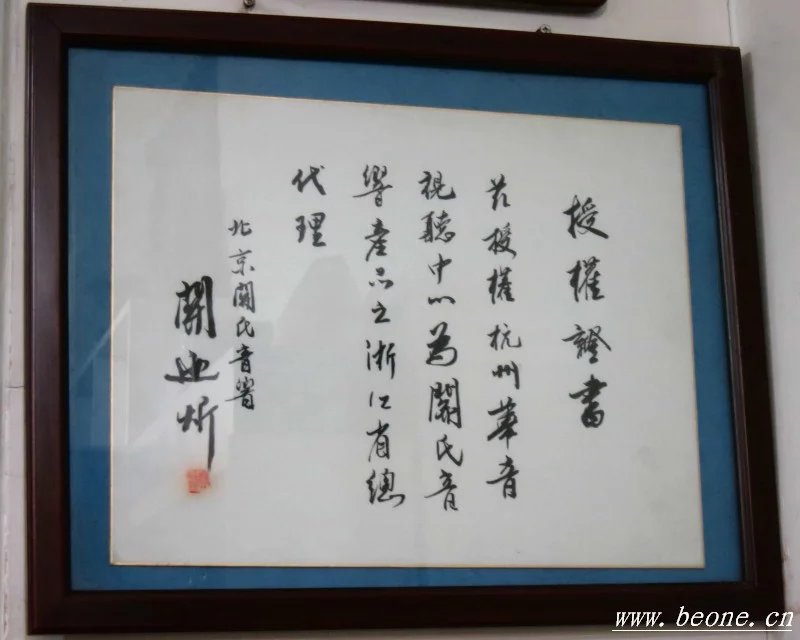 授權證書
茲授權杭州華音
視聽中心為關氏音
響產品之浙江省總
代理
北京關氏音響
關
www.beone.cn